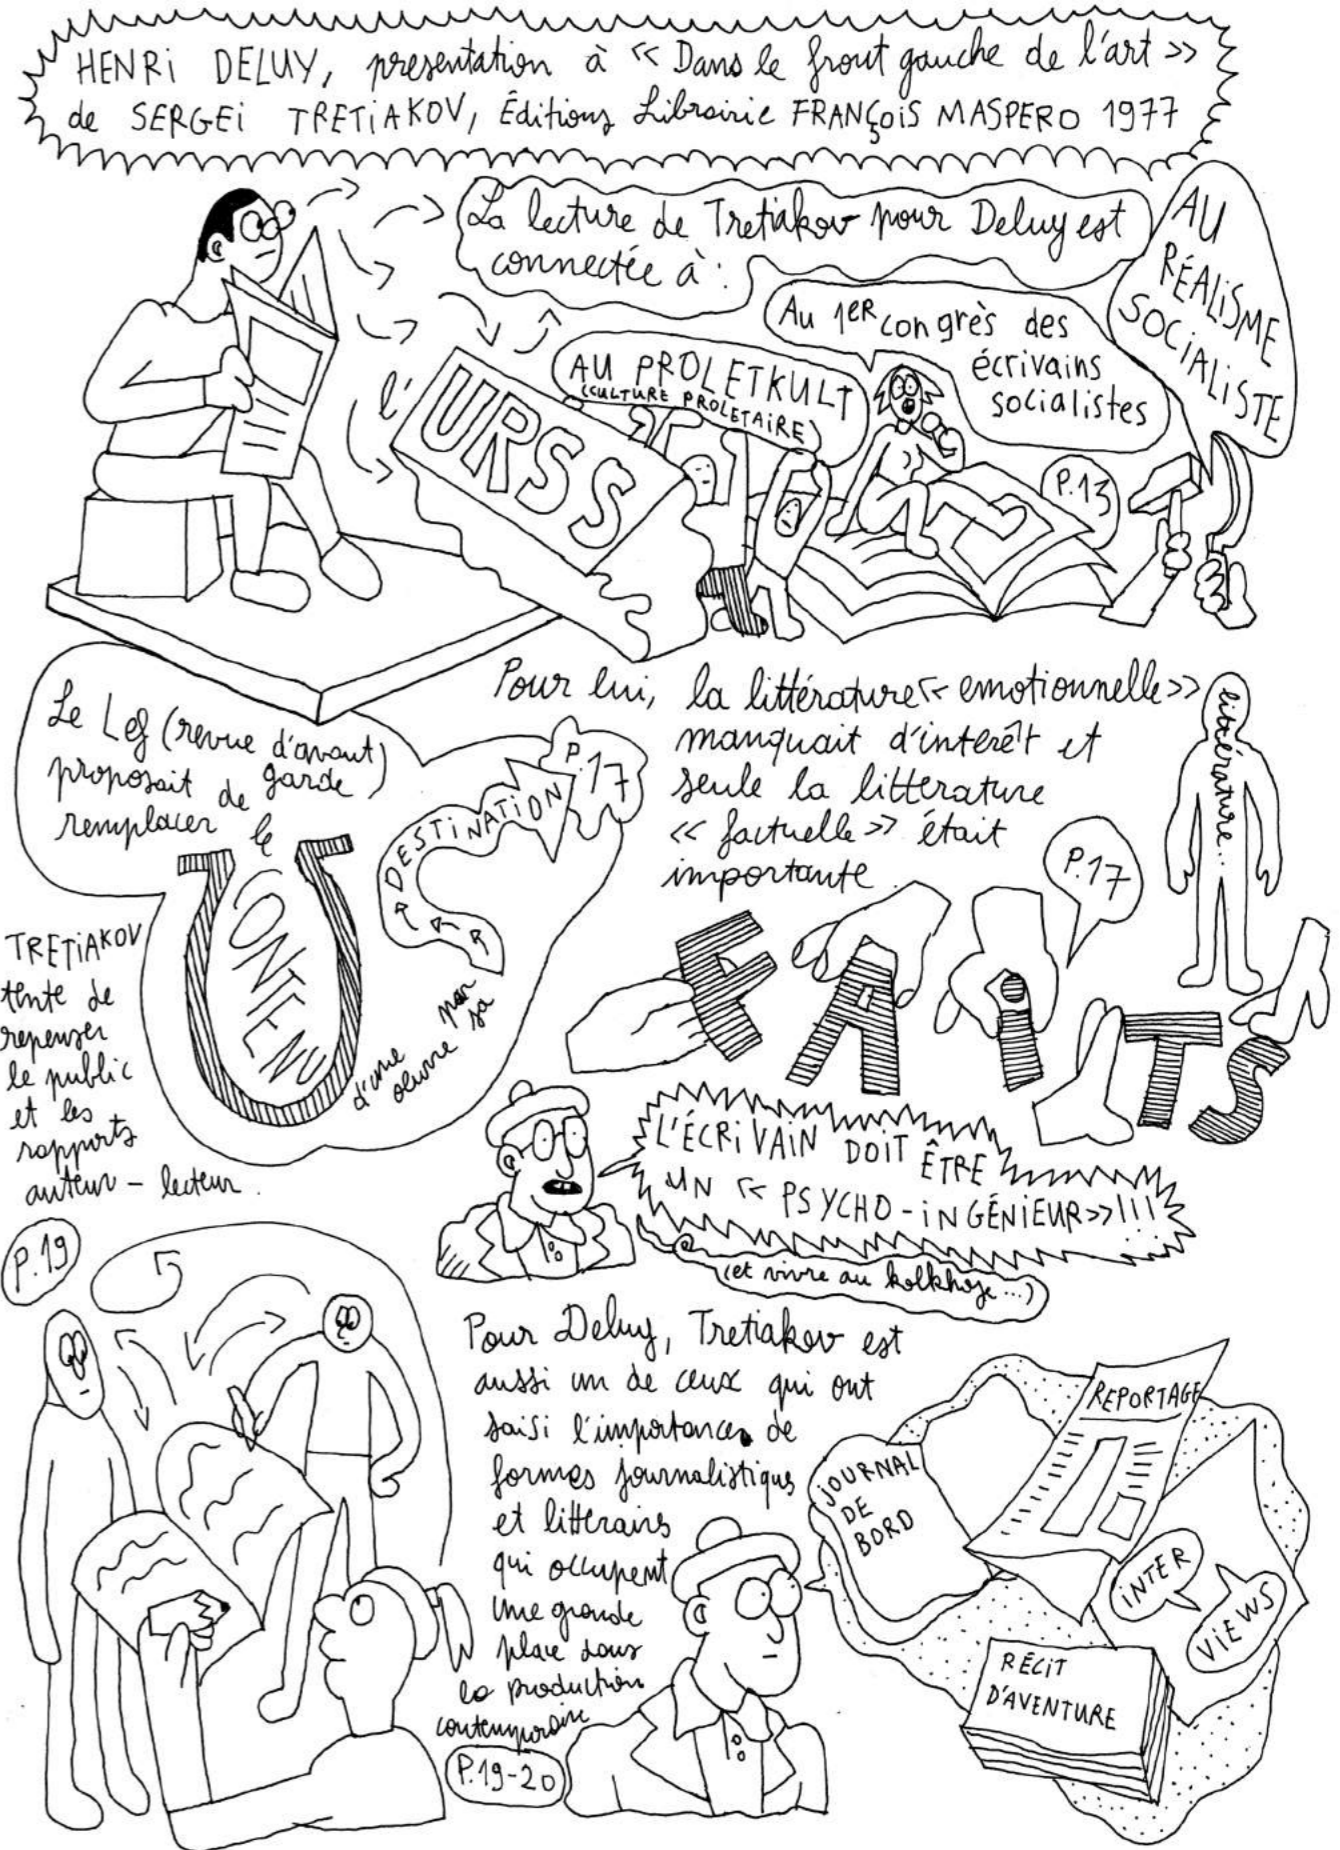 HENRI DELUY, presentation à « Dans le front gauche de l'art »
de SERGEI TRETIAKOV, Éditions Librairie FRANÇOIS MASPERO 1977
La lecture de Tretiakov pour Deluy est
connectée à :
l'
URSS
AU PROLETKULT
(CULTURE PROLETAIRE)
Au 1ER congrès des
écrivains
socialistes
P.13
AU
RÉALISME
SOCIALISTE
Le Lef (revue d'avant
garde)
proposait de
remplacer le
CONTENU
d'une
oeuvre par
sa
DESTINATION
P.17
Pour lui, la littérature « emotionnelle »
manquait d'interêt et
seule la littérature
« factuelle » était
importante
P.17
littérature...
FAITS
TRETIAKOV
tente de
repenser
le public
et les
rapports
auteur - lecteur.
P.19
L'ÉCRIVAIN DOIT ÊTRE
UN « PSYCHO-INGÉNIEUR » !!!
(et vivre au kolkhoze...)
Pour Deluy, Tretiakov est
aussi un de ceux qui ont
saisi l'importance de
formes journalistiques
et litterairs
qui occupent
une grande
place dans
la production
contemporaine
P.19-20
JOURNAL
DE
BORD
REPORTAGE
INTER
VIEWS
RÉCIT
D'AVENTURE